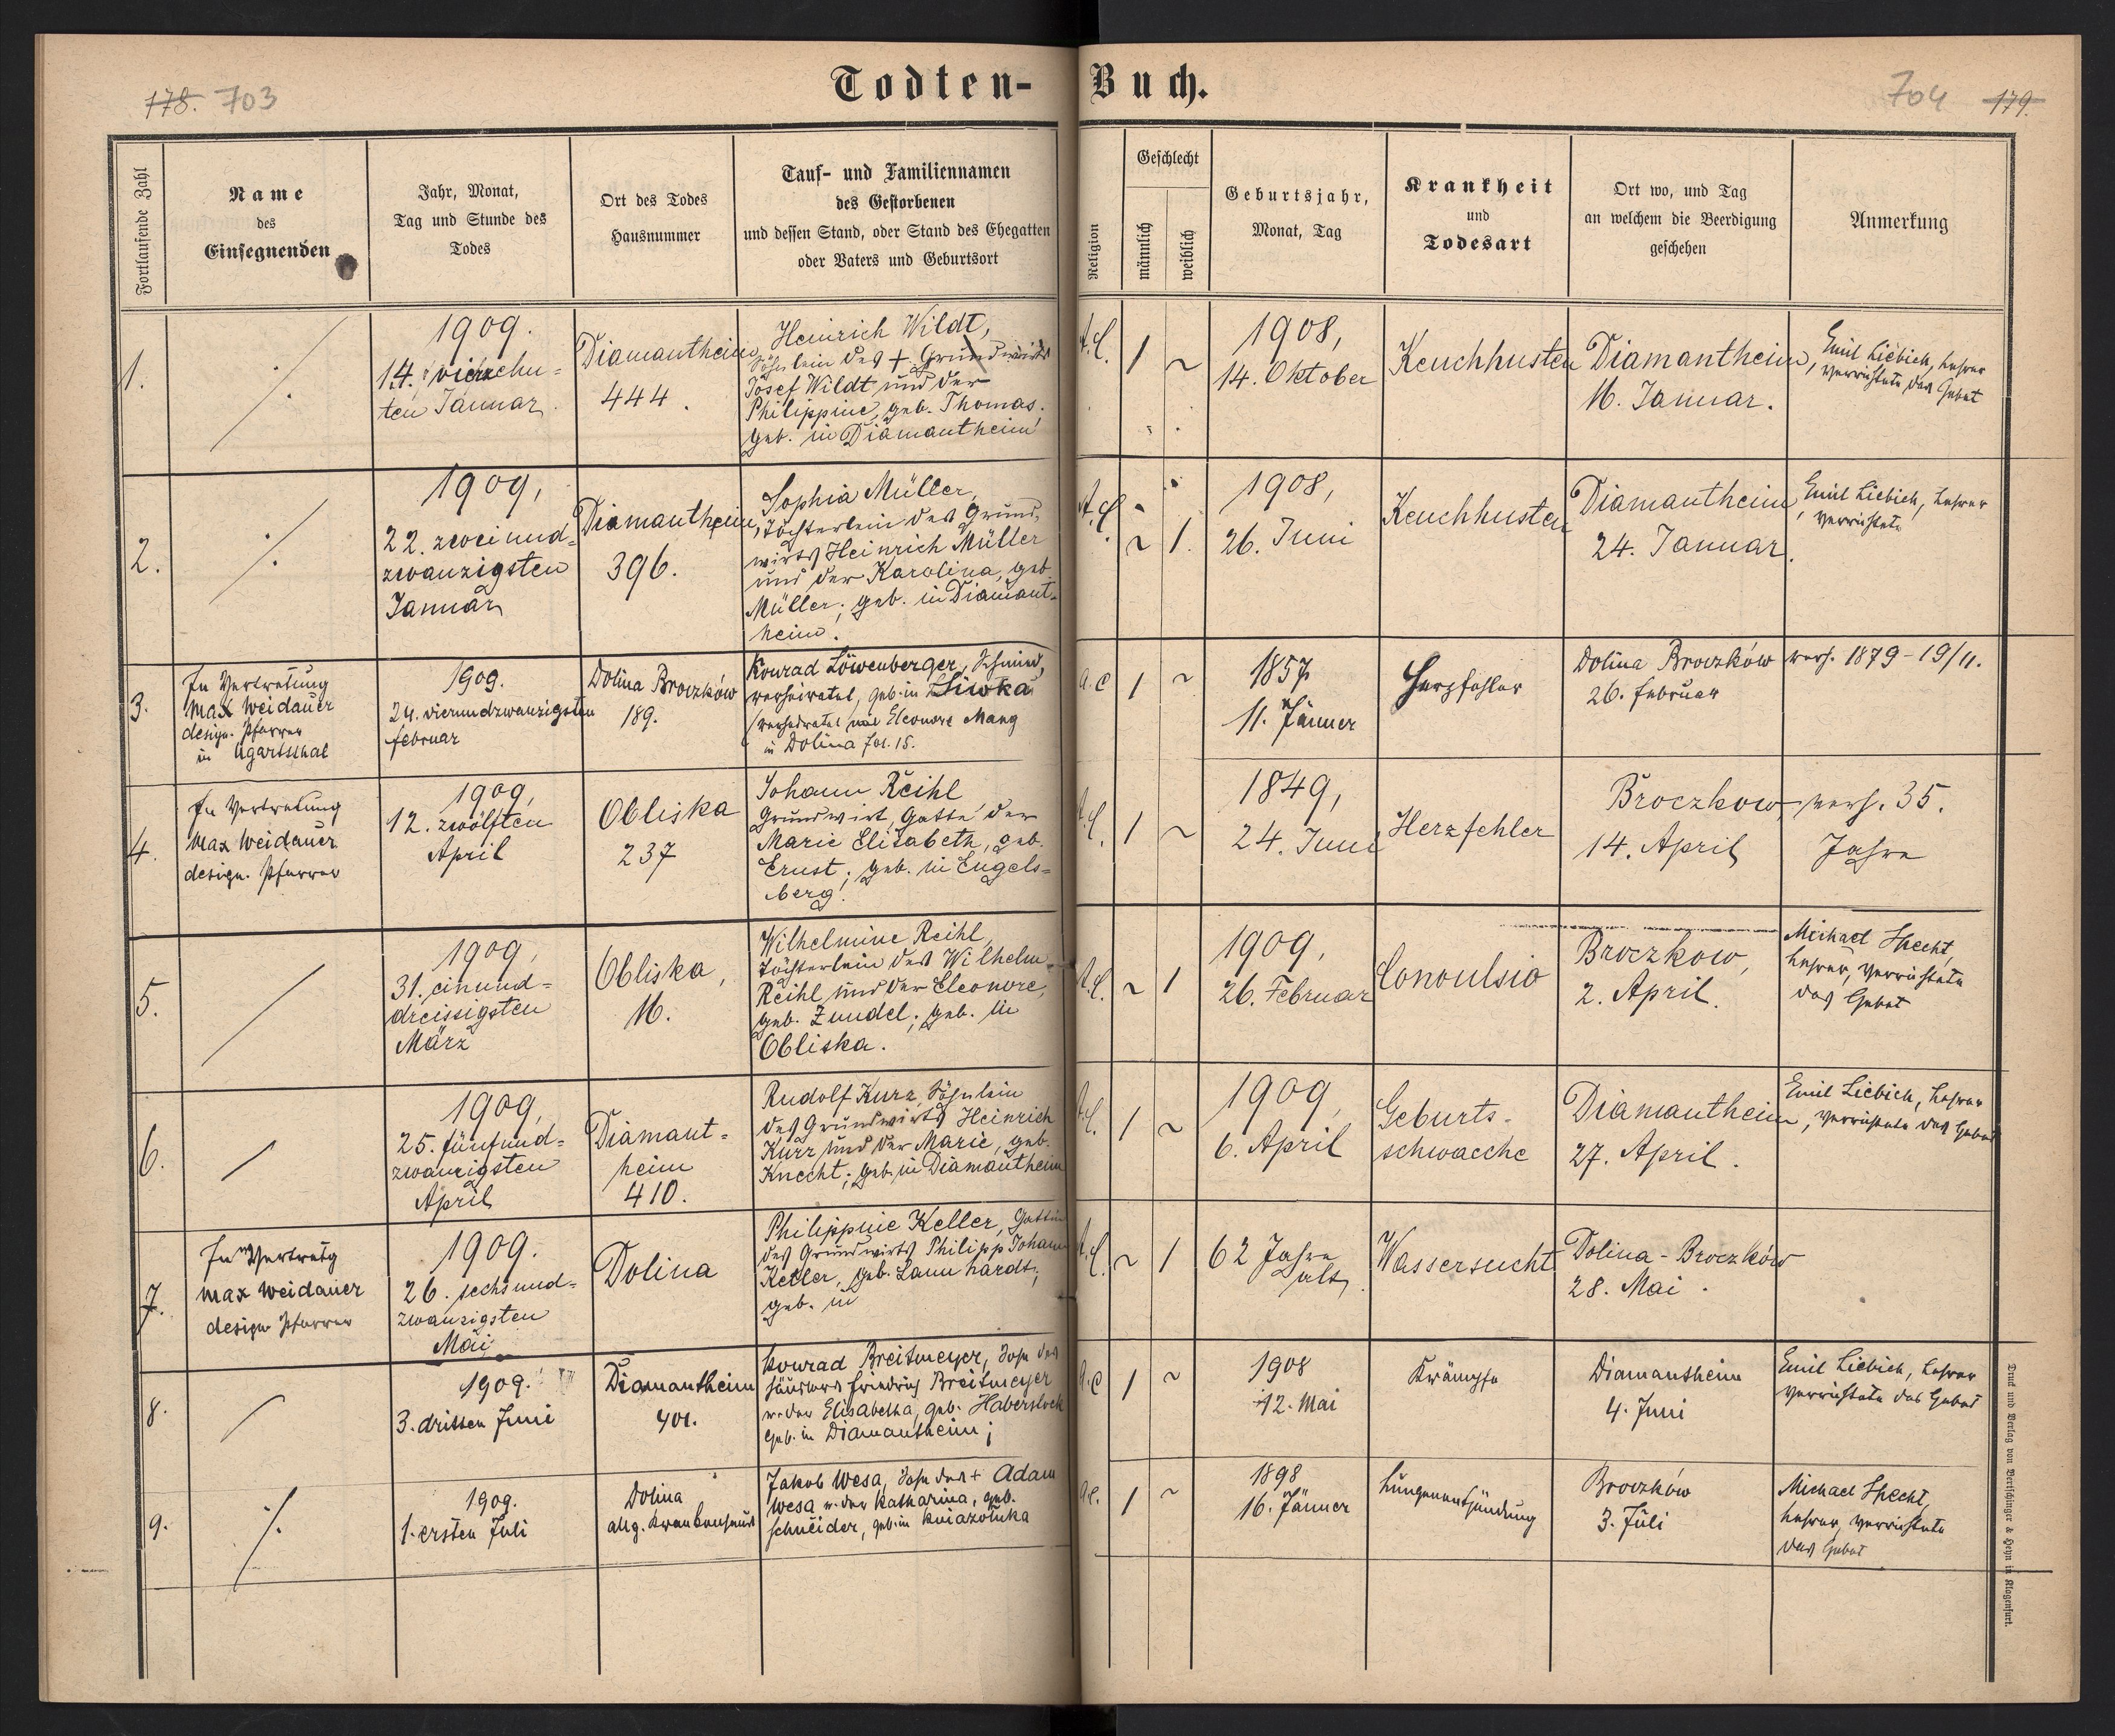 178. 703
Todten-Buch.
704 179.
Fortlaufende Zahl
Name
des
Einsegnenden
Jahr, Monat,
Tag und Stunde des
Todes
Ort des Todes
Hausnummer
Tauf- und Familiennamen
des Gestorbenen
und dessen Stand, oder Stand des Ehegatten
oder Vaters und Geburtsort
Religion
Geschlecht
männlich
weiblich
Geburtsjahr,
Monat, Tag
Krankheit
und
Todesart
Ort wo, und Tag
an welchem die Beerdigung
geschehen
Anmerkung
1.
1909.
14. vierzehn-
ten Januar.
Diamantheim
444.
Heinrich Wildt,
Söhnlein des + Grundwirts
Josef Wildt und der
Philippine, geb. Thomas.
geb. in Diamantheim
A.C.
1 ~
1908,
14. Oktober
Keuchhusten
Diamantheim,
16. Januar.
Emil Liebich, Lehrer
verrichtete das Gebet
2.
1909,
22. zweiund-
zwanzigsten
Januar
Diamantheim,
396.
Sophia Müller,
Töchterlein des Grund-
wirts Heinrich Müller
und der Karolina, geb.
Müller; geb. in Diamant-
heim.
A.C.
~ 1.
1908,
26. Juni
Keuchhusten
Diamantheim,
24. Januar.
Emil Liebich, Lehrer
verrichtete
3.
In Vertretung
Max Weidauer
design. Pfarrer
in Ugartsthal
1909.
24. vierundzwanzigsten
Februar
Dolina Broczków
189.
Konrad Löwenberger, Schmied,
verheiratet, geb. in
verheiratet mit Eleonore Mang
in Dolina fol. 15.
A.C
1 ~
1857
11. Jänner
Herzfehler
Dolina Broczków
26. Februar
verh. 1879 - 19/11.
4.
In Vertretung
Max Weidauer
design. Pfarrer
1909,
12. zwölften
April
Obliska
237
Johann Reihl
Grundwirt, Gatte der
Marie Elisabeth, geb.
Ernst; geb. in Engels-
berg.
A.C.
1 ~
1849,
24. Juni
Herzfehler
Broczkow,
14. April
verh. 35.
Jahre
5.
1909,
31. einund-
dreissigsten
März
Obliska,
16.
Wilhelmine Reihl,
Töchterlein des Wilhelm
Reihl und der Eleonore,
geb. Zundel; geb. in
Obliska.
A.C.
~ 1
1909,
26. Februar
Convulsio
Broczkow,
2. April.
Michael Specht,
Lehrer, verrichtete
das Gebet
6.
1909,
25. fünfund-
zwanzigsten
April
Diamant-
heim
410.
Rudolf Kurz, Söhnlein
des Grundwirts Heinrich
Kurz und der Marie, geb.
Knecht; geb. in Diamantheim
A.C.
1 ~
1909,
6. April.
Geburts-
schwaeche
Diamantheim,
27. April.
Emil Liebich, Lehrer
verrichtete das Gebet
7.
In Vertretg
Max Weidauer
design Pfarrer
1909.
26. sechsund-
zwanzigsten
Mai
Dolina
Philippine Keller, Gattin
des Grundwirts Philipp Johann
Keller, geb. Lannhardt;
geb. in
A.C.
~ 1
62 Jahre
alt
Wassersucht
Dolina - Broczków
28. Mai.
8.
1909.
3. dritten Juni
Diamantheim
401.
Konrad Breitmeyer, Sohn des
Häuslers Friedrich Breitmeyer
u. der Elisabetha, geb. Haberstock
geb. in Diamantheim;
A.C
1 ~
1908
12. Mai
Krämpfe
Diamantheim
4. Juni
Emil Liebich, Lehrer
verrichtete das Gebet
9.
1909.
1. ersten Juli
Dolina
allg. Krankenhaus
Jakob Wesa, Sohn des + Adam
Wesa u. der Katharina, geb.
Schneider, geb. in Kniazoluka
A.C.
1 ~
1898
16. Jänner
Lungenentzündung
Broczków
3. Juli
Michael Specht,
Lehrer, verrichtete
das Gebet
Druck und Verlag von Bertschinger & Heyn in Klagenfurt.